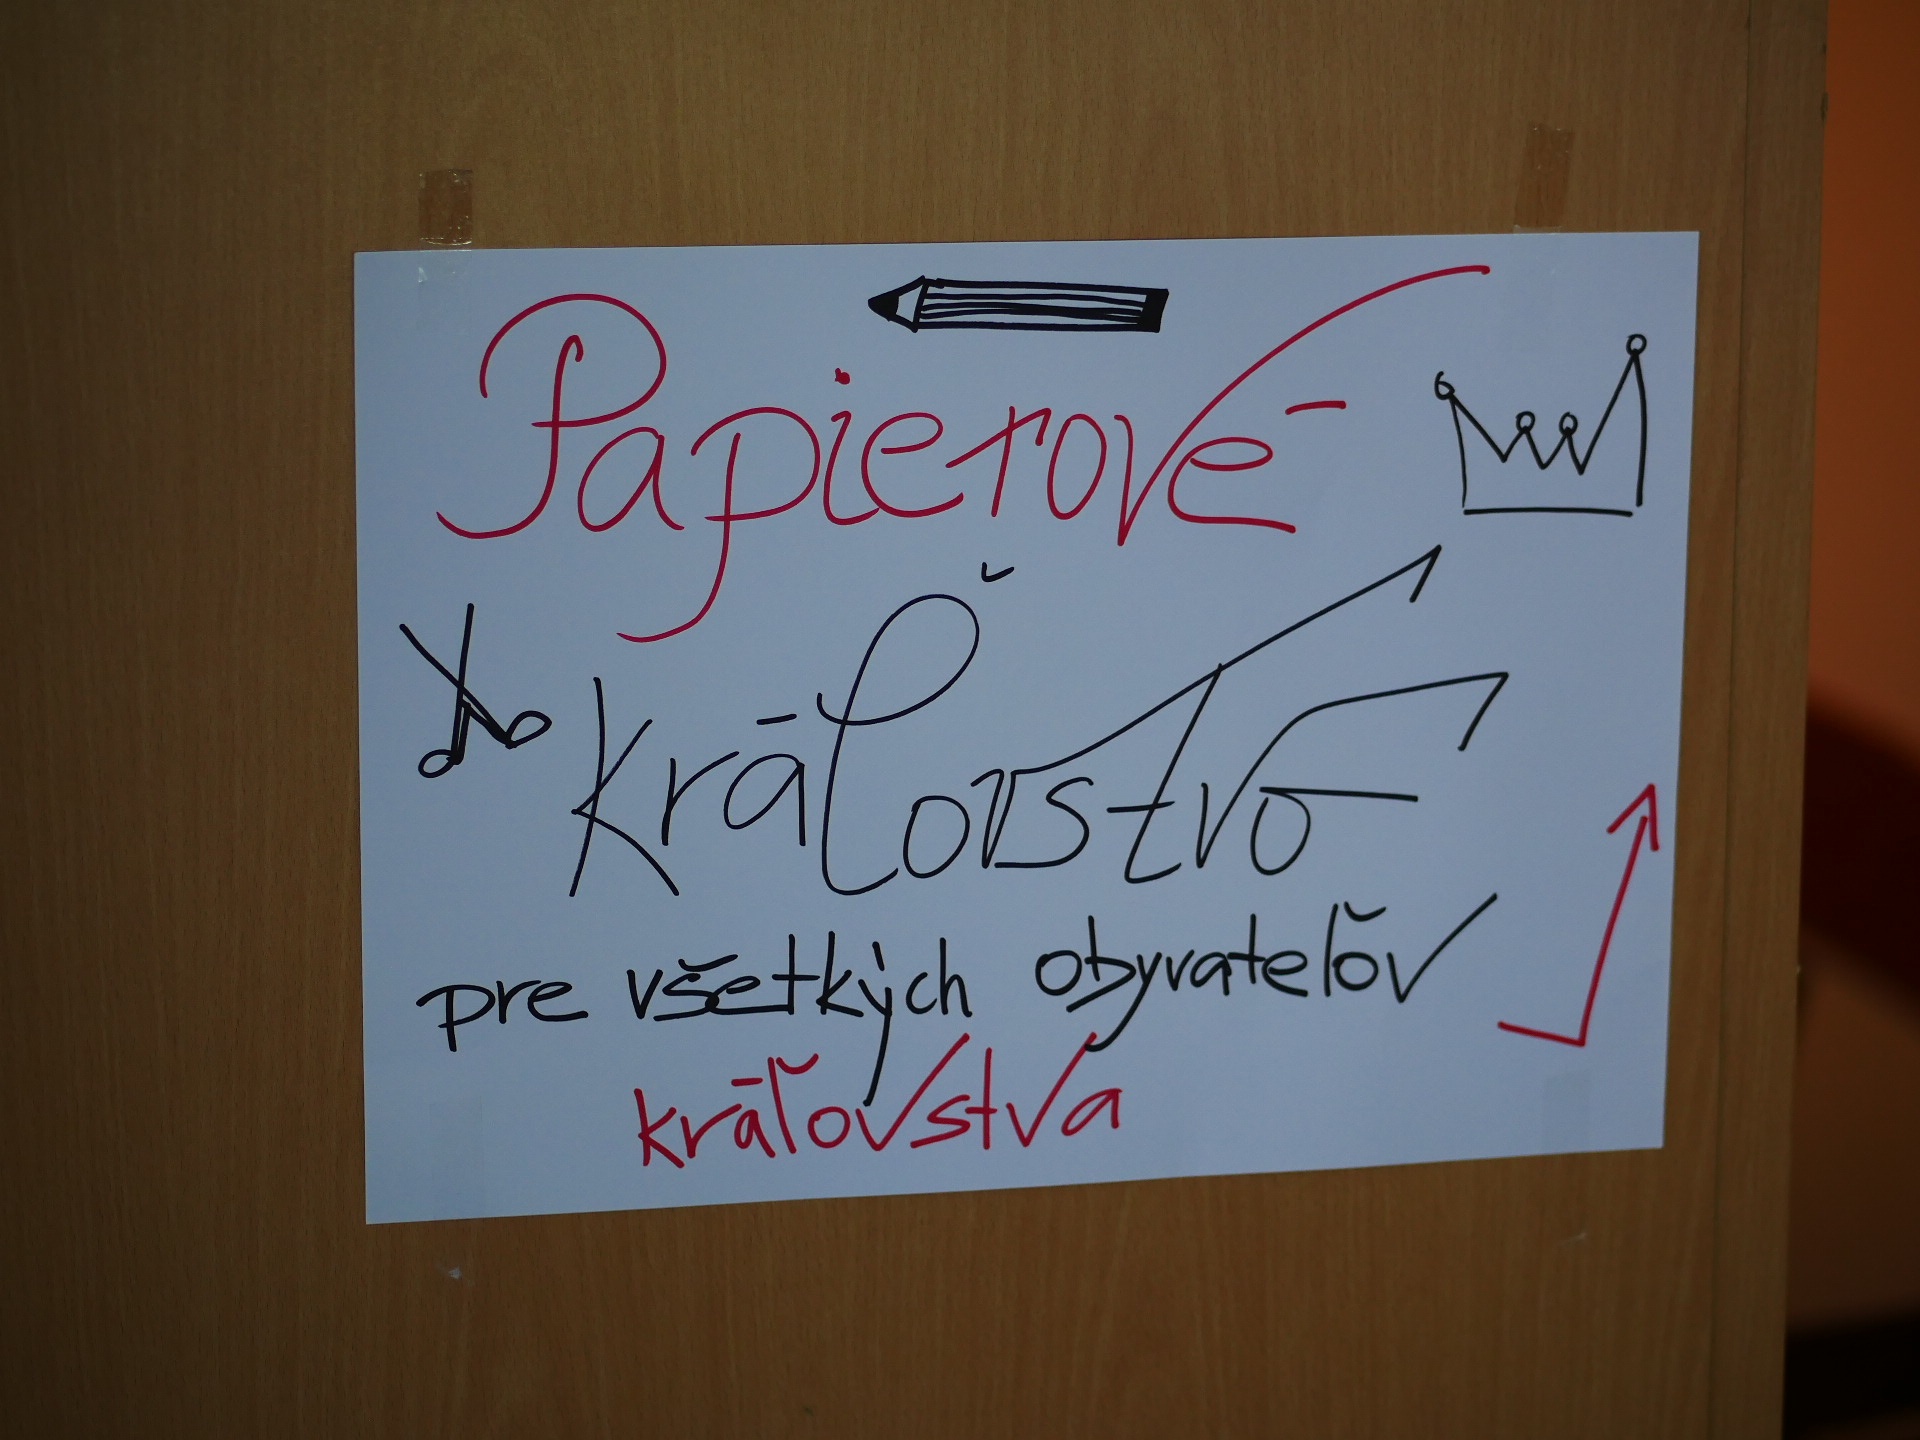 Papierové
kráľovstvo
pre všetkých obyvateľov
kráľovstva